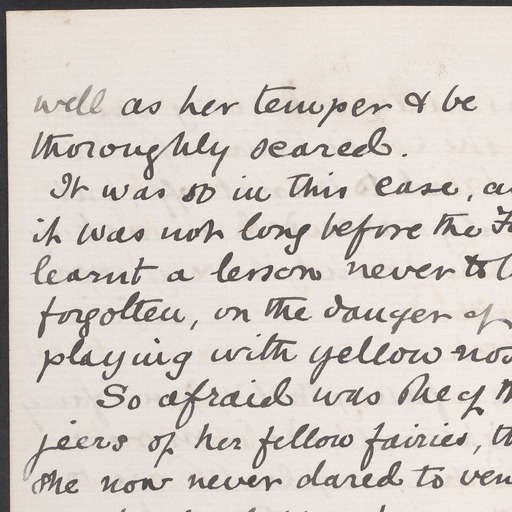 well as her temper & be
thoroughly scared.
It was so in this case, a
it was not long before the F
learnt a lesson never to b
forgotten, on the danger of
playing with yellow nos
So afraid was she of th
jeers of her fellow fairies, th
she now never dared to ven